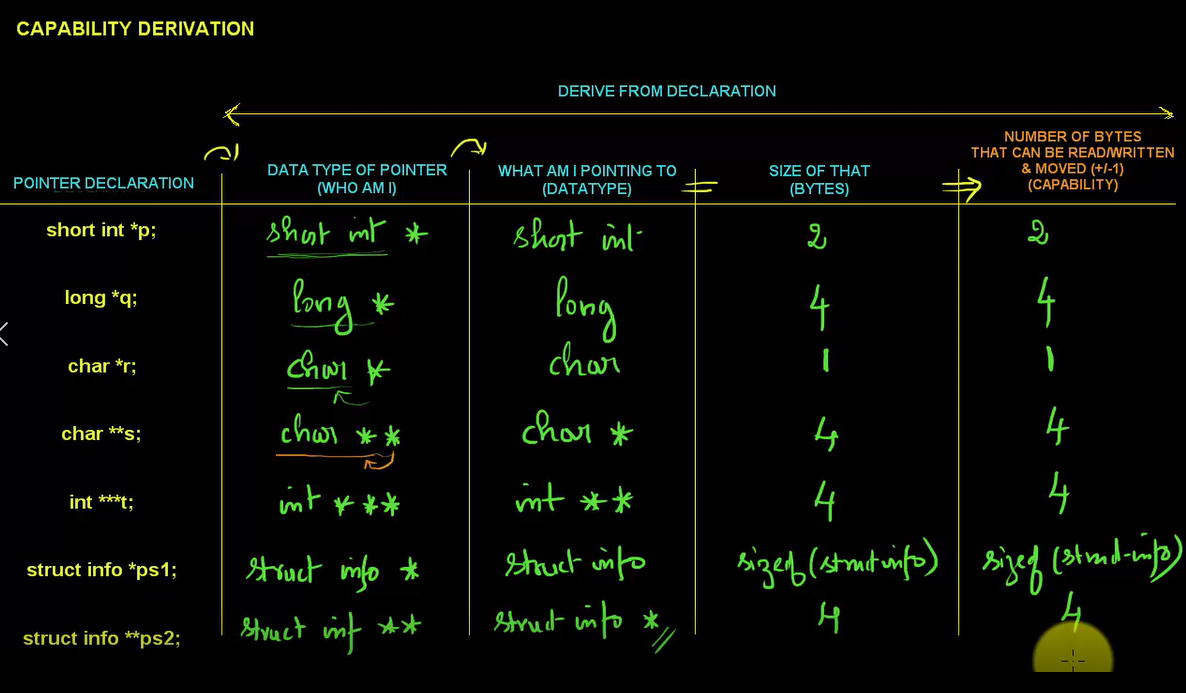 CAPABILITY DERIVATION
DERIVE FROM DECLARATION
POINTER DECLARATION
DATA TYPE OF POINTER
(WHO AM I)
WHAT AM I POINTING TO
(DATATYPE)
SIZE OF THAT
(BYTES)
NUMBER OF BYTES
THAT CAN BE READ/WRITTEN
& MOVED (+/-1)
(CAPABILITY)
short int *p; short int * short int 2 2
long *q; long * long 4 4
char *r; char * char 1 1
char **s; char ** char * 4 4
int ***t; int *** int ** 4 4
struct info *ps1; struct info * struct info sizeof(struct info) sizeof(struct info)
struct info **ps2; struct inf ** struct info * 4 4